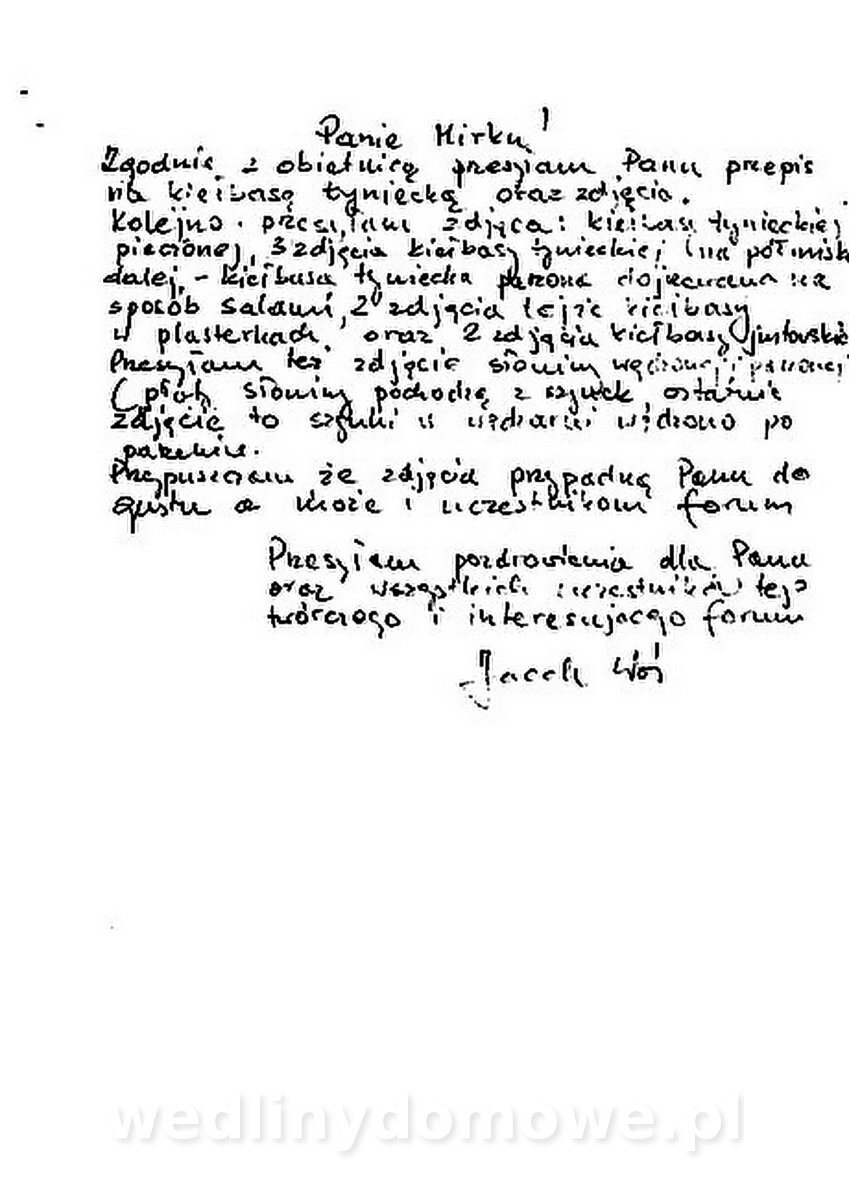 Panie Mirku!
Zgodnie z obietnicą przesyłam Panu przepis
na kiełbasę tyniecką oraz zdjęcia.
Kolejno przesyłam zdjęca: kiełbasy tynieckiej
pieczonej, 3 zdjęcia kiełbasy tynieckiej (na półmisk
dalej, - kiełbasa tyniecka parzona dojrzewana na
sposób salami, 2 zdjęcia tejże kiełbasy
w plasterkach, oraz 2 zdjęcia kiełbasy justowskie
Przesyłam też zdjęcie słoniny wędzonej i parzonej
(płaty słoniny pochodzą z szynek, ostatnie
zdjęcie to szynki w wędzarni wędzone po
parzeniu.
Przypuszczam że zdjęcia przypadną Panu do
gustu a może i uczestnikom forum
Przesyłam pozdrowienia dla Pana
oraz wszystkich uczestników tego
twórczego i interesującego forum
Jacek Woś
wedlinydomowe.pl